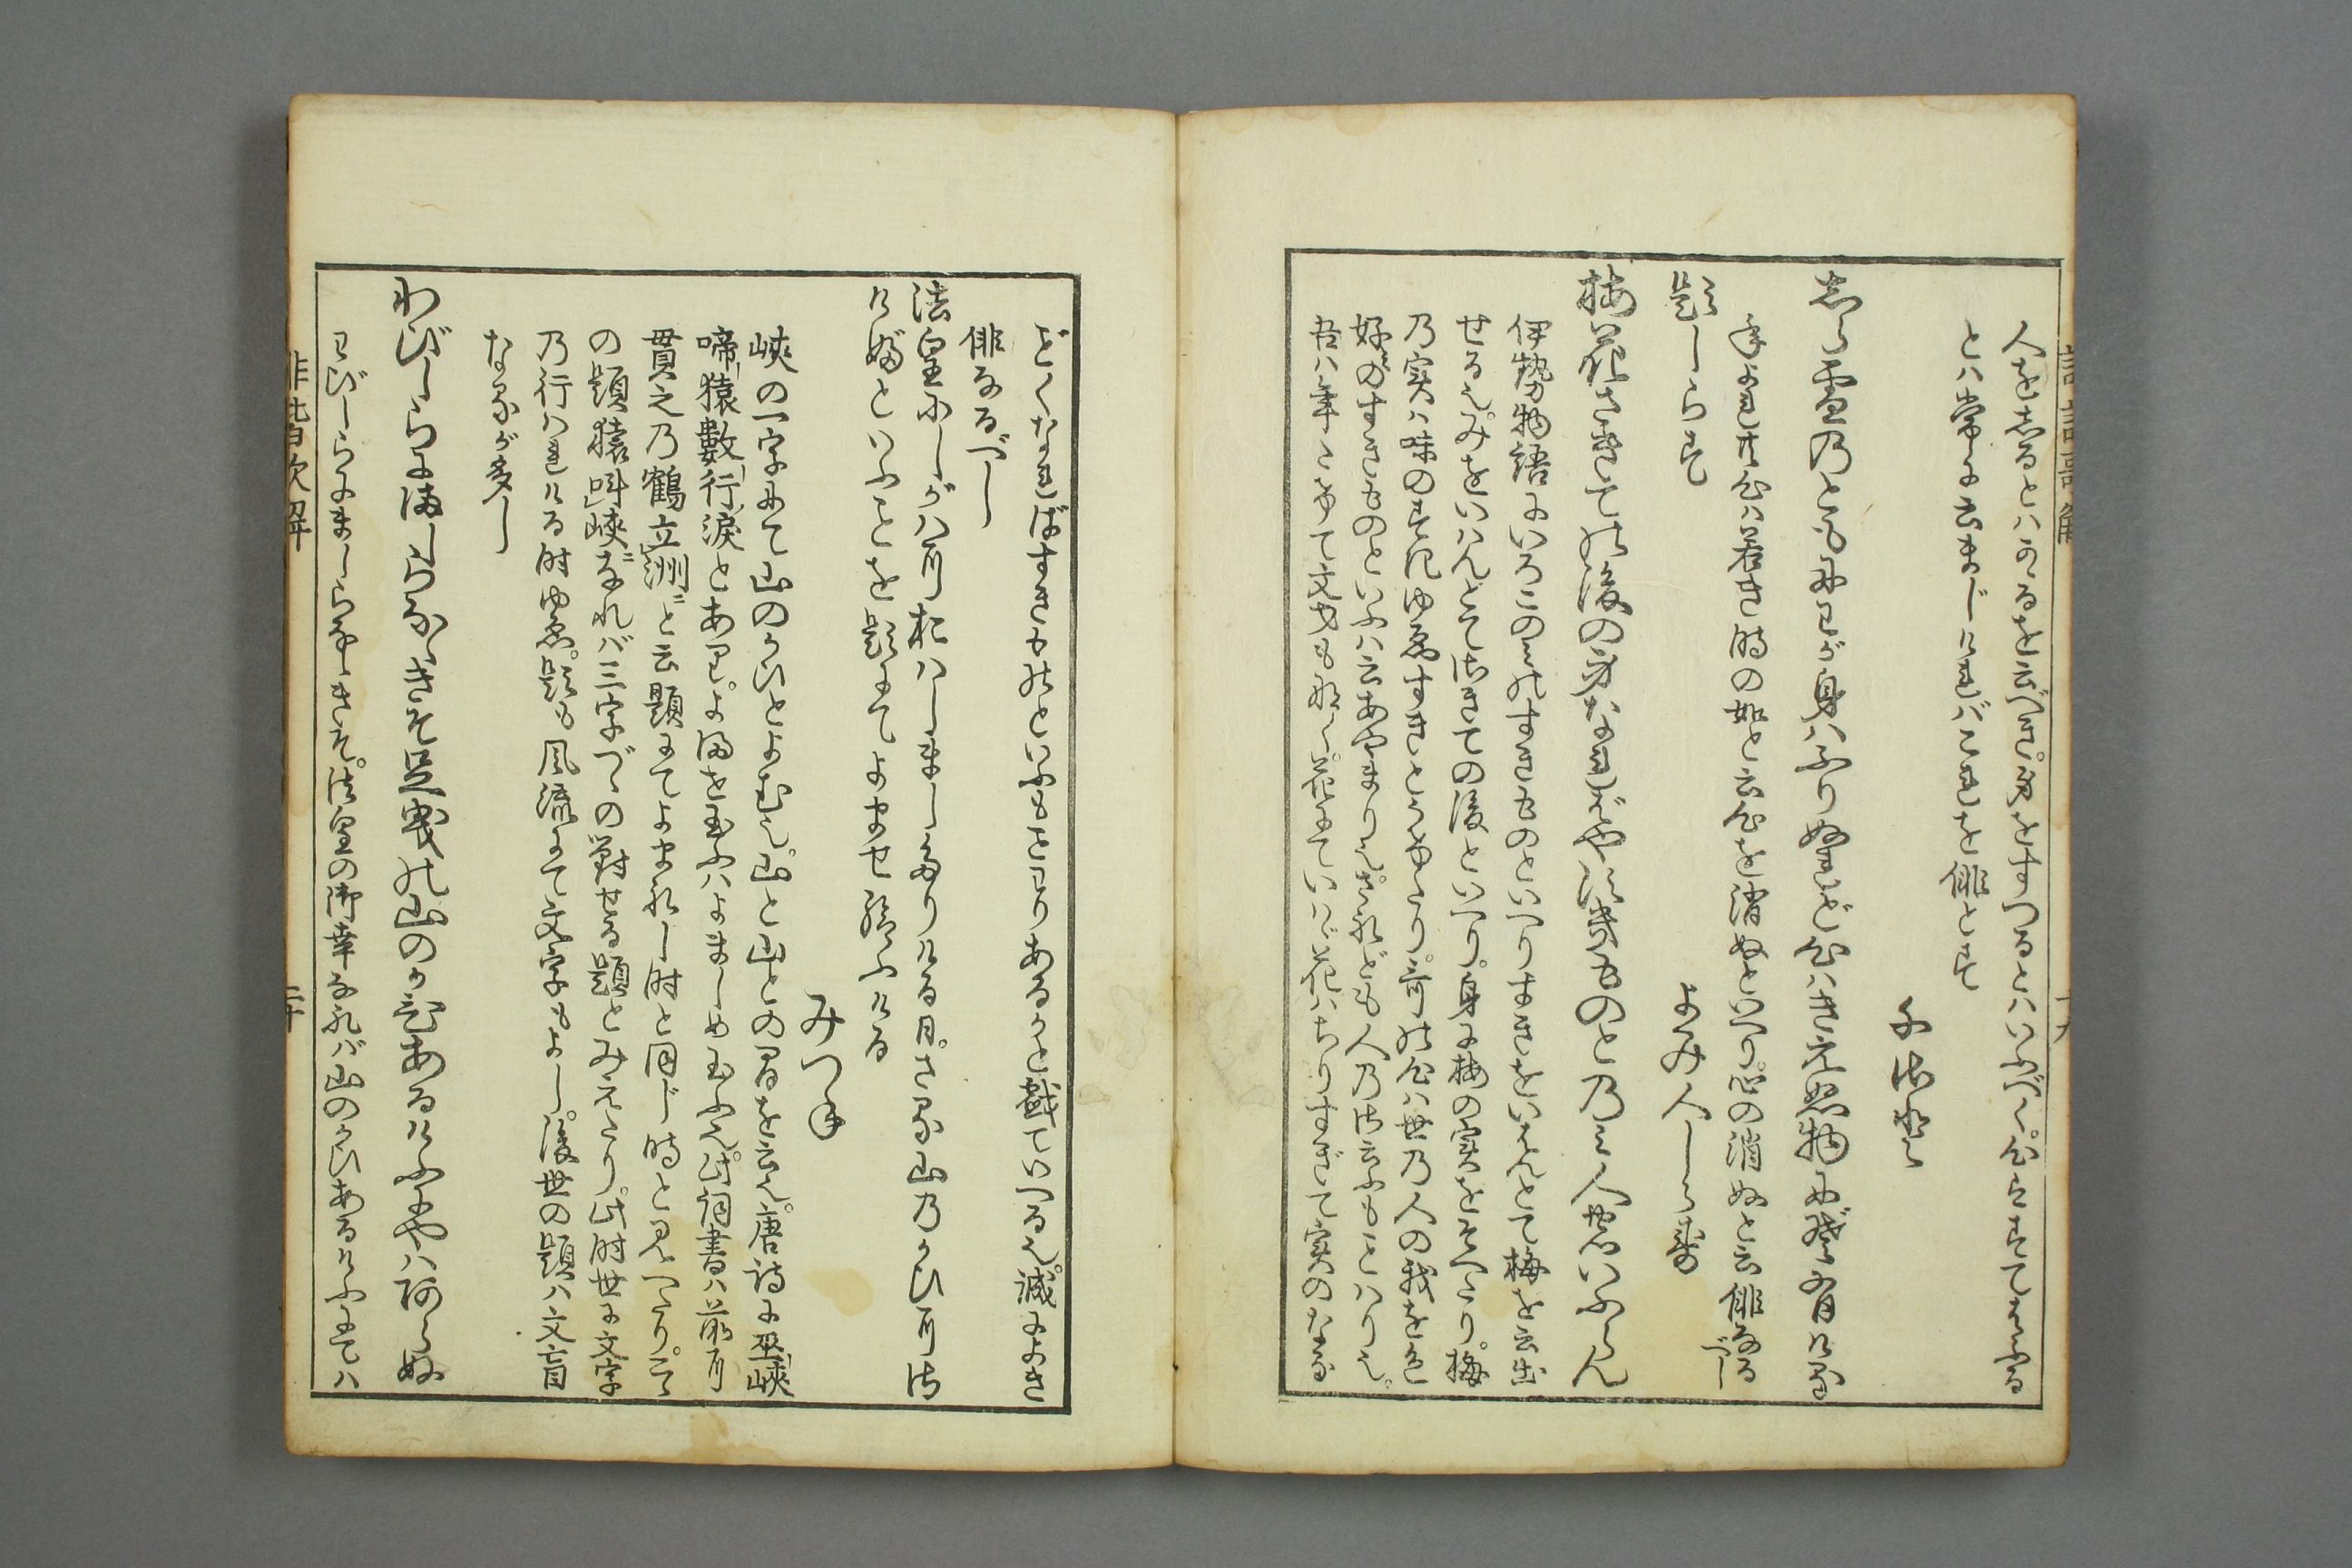 人をしるとハかゝるを云べき。身をすつるとハいふべく。心をすてはふる
とハ常に云まじければこれを俳とす
千さと
しら雪のともにわが身ハふりぬれど心ハきえぬ物にぞ有ける
年よれ共心ハ若き時の如と云心を消ぬといへり。心の消ぬと云俳なるべし
題しらす
よみ人しらず
梅花さきての後の身なればやすきものとのミ人のいふらん
伊勢物語にいろこのミのすきものといへりすきをいはんとて梅を云出
せる也。みをいはんとてさきての後といへり。身に梅の実をそへたり。梅
の実ハ味のすき物ゆゑすきとうけたり。哥の心ハ世の人の我を色
好のすきものといふハ云あやまり也。されども人のさ云ふもことハり也。
吾ハ年たけて文才も和く。花にていハゞ花ハちりすぎて実のなる
どくなればすきものといふもことわりあるかと戯ていへる也。誠によき
俳なるべし
法皇にしが八月松ハしましたりける日。さる山のかひにさ
けぶといふことを題にてよませ給ふける
みつね
峡の一字にて山のかひとよむ也。山と山との間を云也。唐詩に巫峡
啼猿數行涙とあり。よませ玉ふハよましめ玉ふ也。此詞書ハ前に
貫之の鶴立洲と云題にてよまれし時と同じ時と見へたり。こゝ
の題猿叫峡なれバ三字づゝの對せる題とみえたり。此時世に文字
の行ハれける時ゆゑ。題も風流にて文字もよし。後世の題ハ文盲
なるが多し
わびしらにましらなゝきそ足曳の山のかひあるけふにやハあらぬ
わびしらにましらなゝきそ。法皇の御幸なれバ山のかひあるけふにてハ